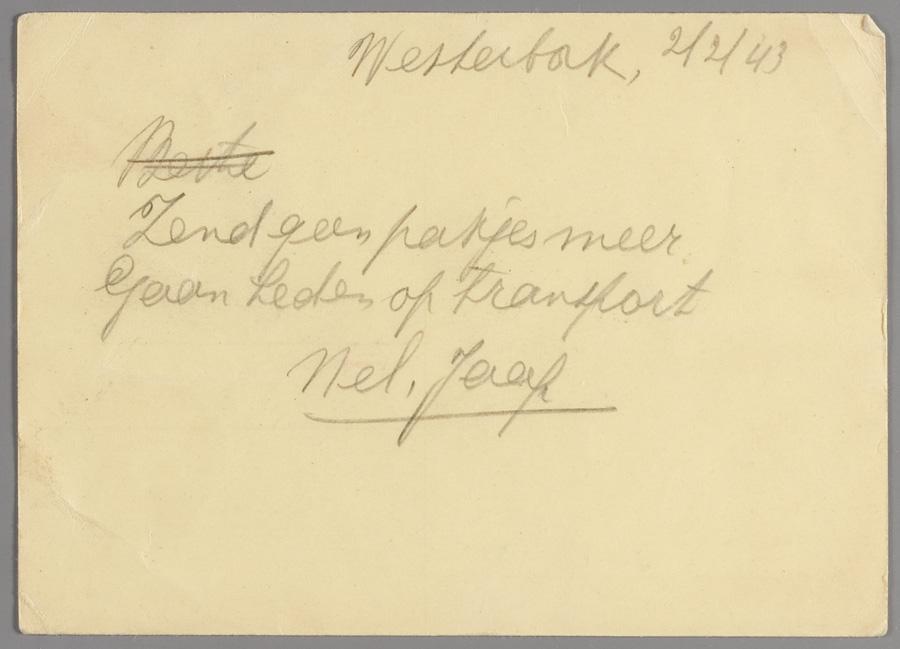 Westerbork, 2/2/43
Beste
Zend geen pakjes meer.
Gaan heden op transport
Nel, Jaap